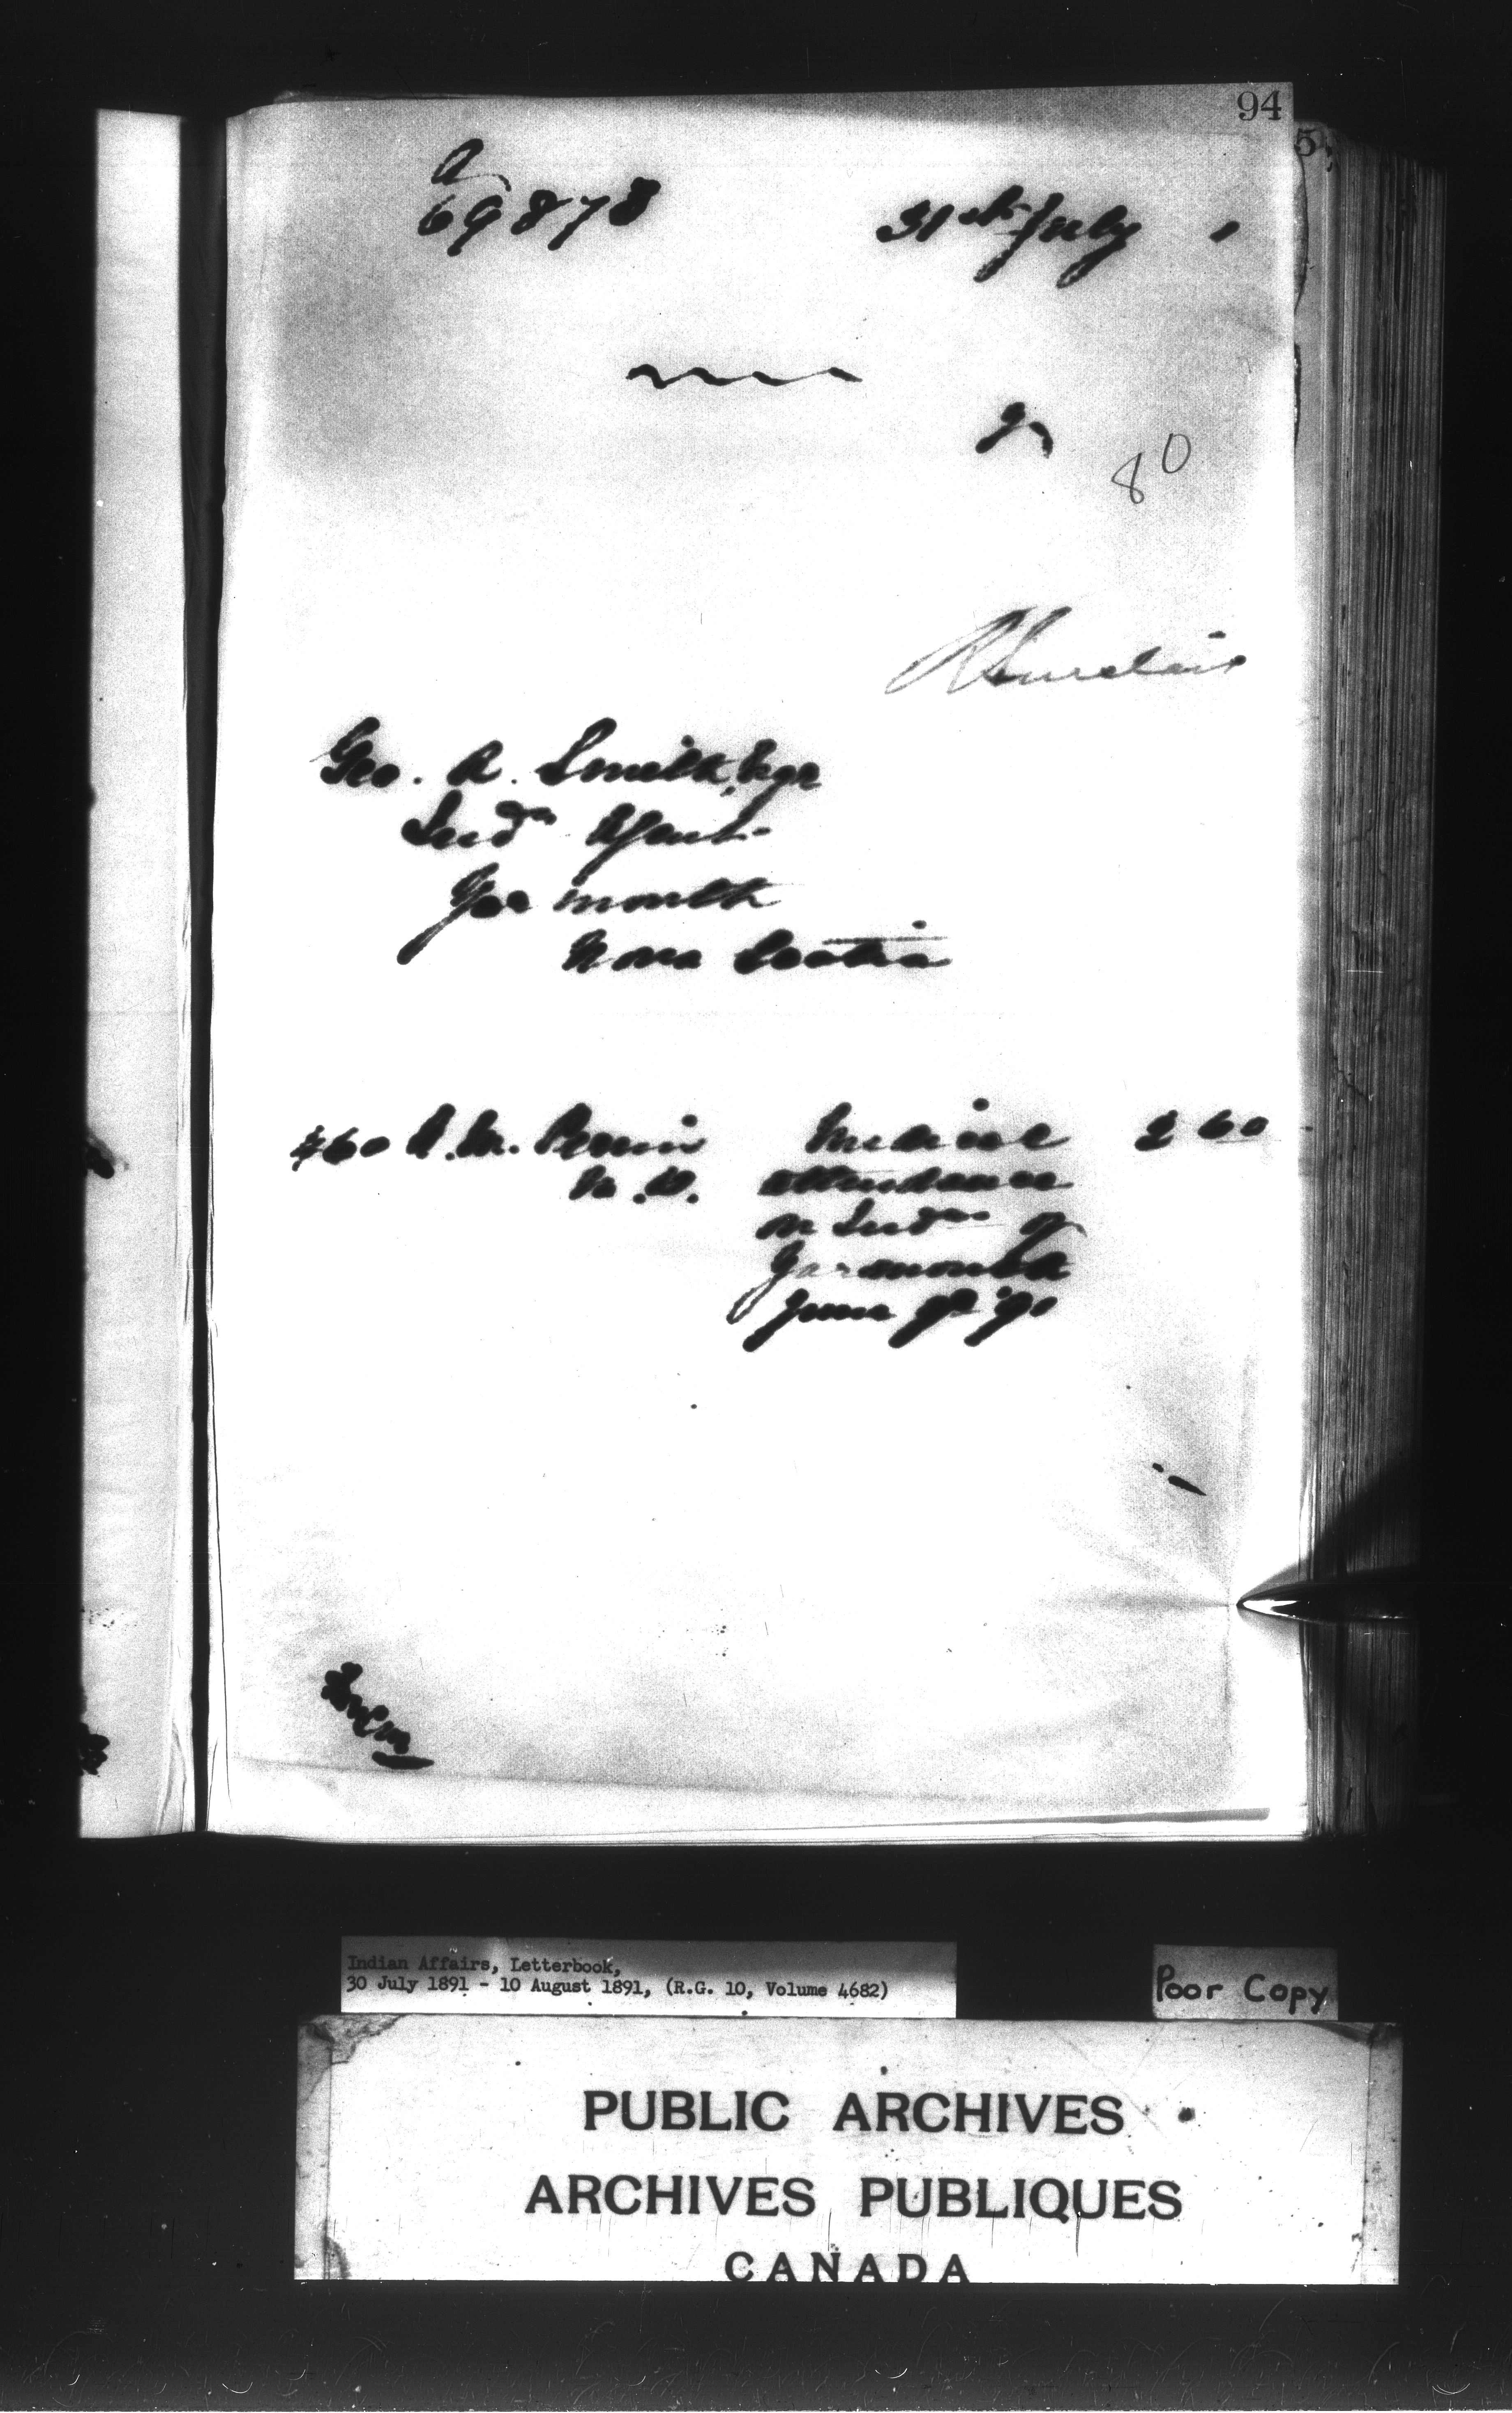 94
5
A
69878
31st July 1
80
R Sinclair
Geo. R. Smith, Esqr
Indn Agent
Yarmouth
Nova Scotia
$60 A.M. Perrin Medical 2 60
M.D. attendance
on Indns of
Yarmouth
June 9th '90
Indian Affairs, Letterbook,
30 July 1891 - 10 August 1891, (R.G. 10, Volume 4682)
Poor Copy
PUBLIC ARCHIVES
ARCHIVES PUBLIQUES
CANADA